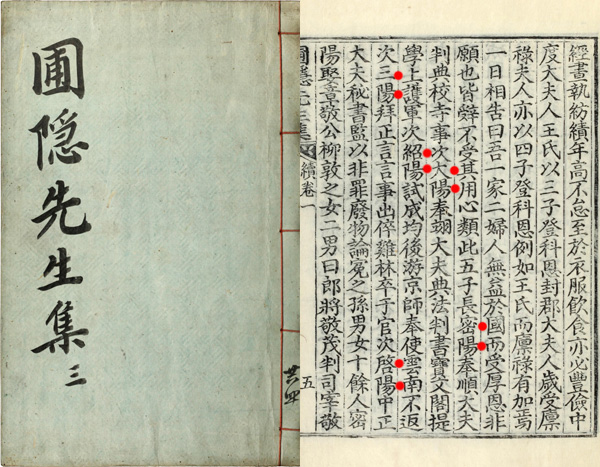 圃隠先生集三
共四
經書執紡績年高不怠至於衣服飮食亦必豊儉中
度大夫人王氏以三子登科恩封郡大夫人歲受廩
祿夫人亦以四子登科恩例如王氏而廩祿有加焉
一日相告曰吾一家二婦人無益於國而受厚恩非
願也皆辤不受其用心類此五子長密陽奉順大夫
判典校寺事次大陽奉翊大夫典法判書寶文閣提
學上護軍次紹陽試成均後游京師奉使雲南不返
次三陽拜正言言事出倅雞林卒于官次啓陽中正
大夫秘書監以非罪廢物論寃之孫男女十餘人密
陽娶章敬公柳敦之女二男曰郎將敬茂判司宰敬
圃隱先生集 續卷一 五